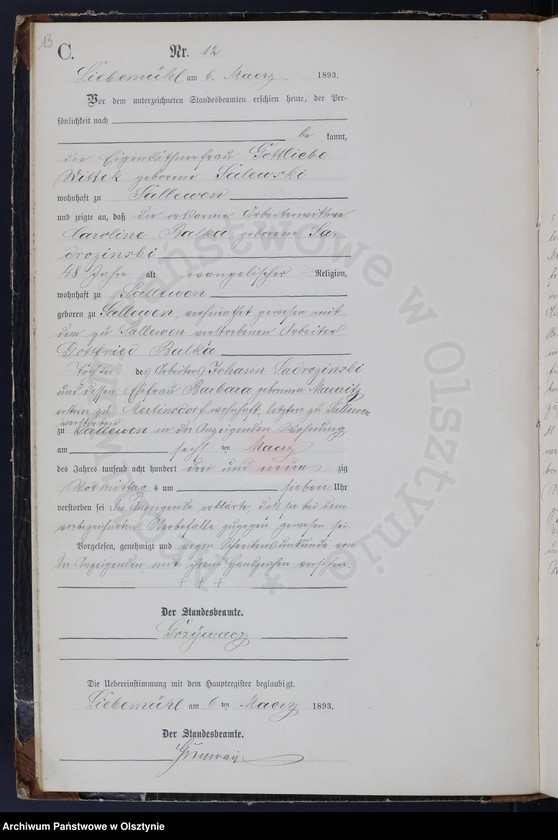 13
C.
Nr. 12
Liebemühl am 6. Maerz 1893.
Vor dem unterzeichneten Standesbeamten erschien heute, der Per-
sönlichkeit nach
be kannt,
die Eigenkäthnerfrau Gottliebe
Wittek geborene Salewski
wohnhaft zu Sallewen
und zeigte an, daß die ortsarme Arbeiterwittwe
Caroline Balka geborene Sa-
drozinski
48 Jahre alt evangelischer Religion,
wohnhaft zu Sallewen
geboren zu Sallewen, verheirathet gewesen mit
dem zu Sallewen verstorbenen Arbeiter
Gottfried Balka
Tochter des Arbeiters Johann Sadrozinski
und dessen Ehefrau Barbara geborene
zu wohnhaft, letztere zu Sallewen
verstorben
zu Sallewen in der Anzeigenden Wohnung
am sechsten Maerz
des Jahres tausend acht hundert drei und neun zig
Vormittag s um sieben Uhr
verstorben sei. Die Anzeigende erklärte, daß sie bei dem
vorbezeichneten Sterbefalle zugegen gewesen sei.
Vorgelesen, genehmigt und wegen Schreibensunkunde von
der Anzeigenden mit ihrem Handzeichen versehen.
+ + +
Der Standesbeamte.
Grzywacz
Die Uebereinstimmung mit dem Hauptregister beglaubigt.
Liebemühl am 6 ten Maerz 1893.
Der Standesbeamte.
Archiwum Państwowe w Olsztynie
Archiwum Państwowe w Olsztynie